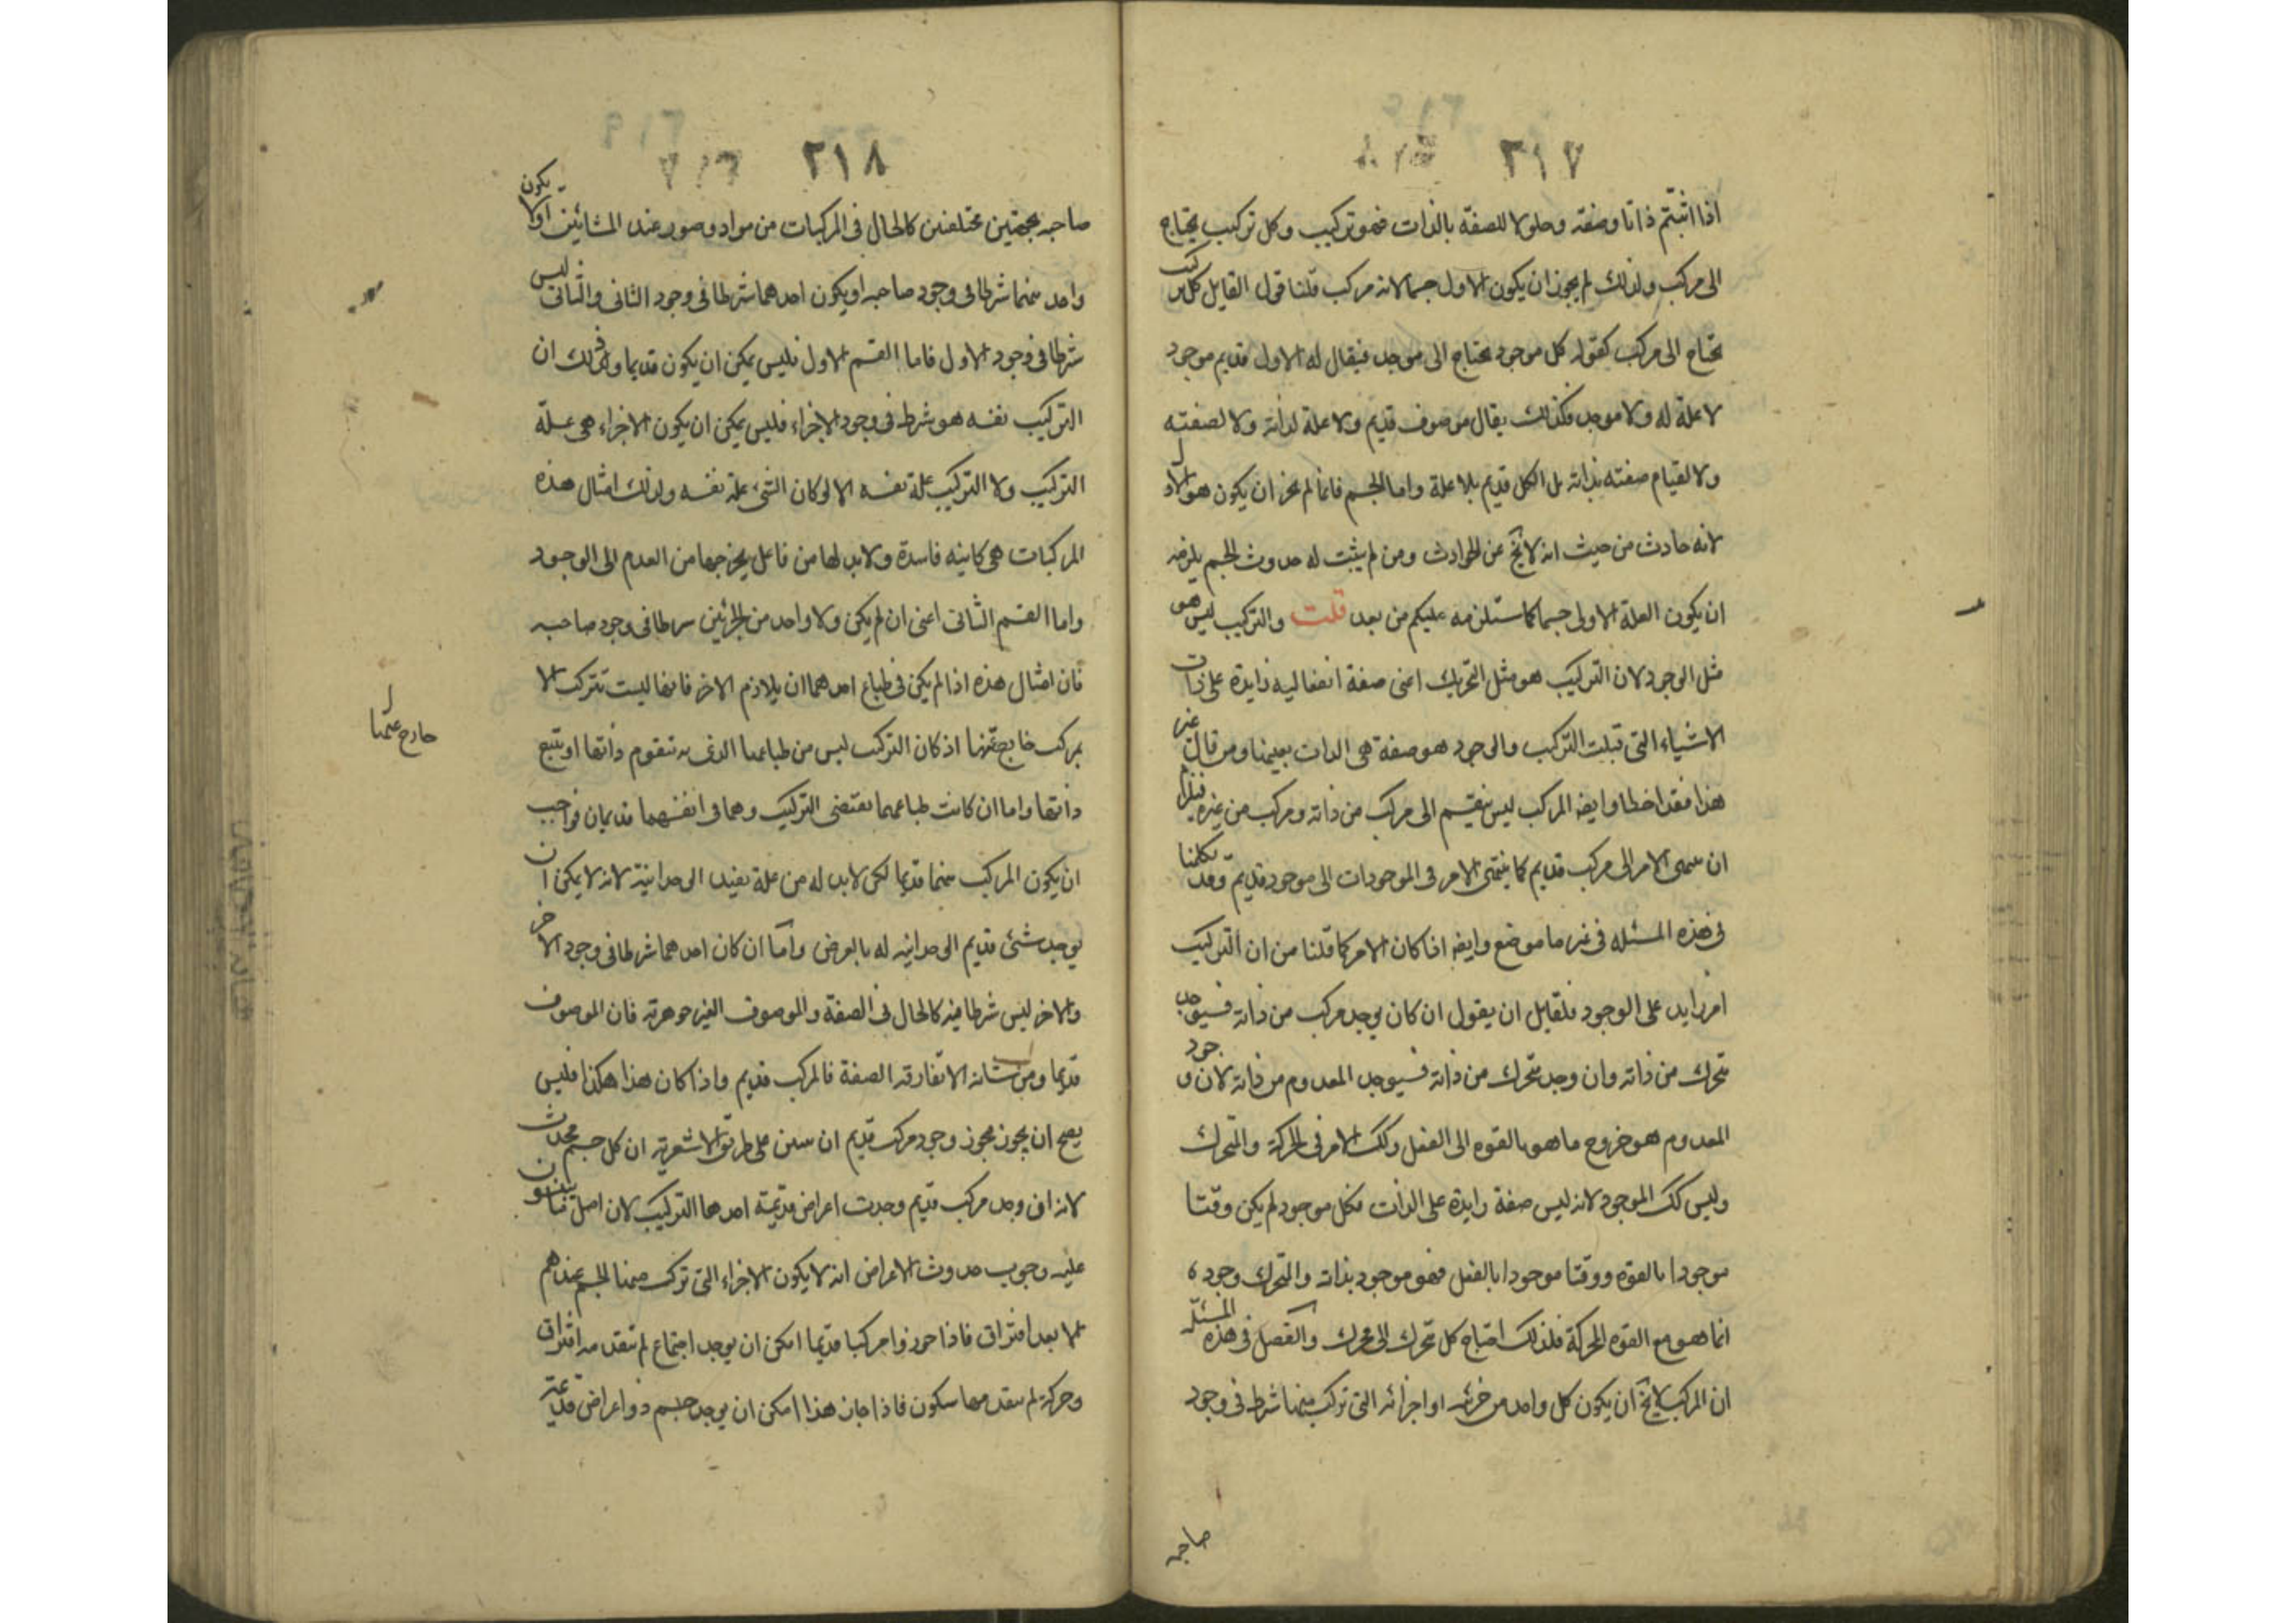 ٢١٧
اذا اثبتم ذاتا وصفة وحلولا للصفة بالذات فهو تركيب وكل تركيب يحتاج
الى مركب ولذلك لم يجز ان يكون الاول جسما لانه مركب قلنا قول القايل كل مركب
يحتاج الى مركب كقوله كل موجود يحتاج الى موجد فيقال له الاول قديم موجود
لا علة له ولا موجد فكذلك يقال موصوف قديم ولا علة لذاته ولا لصفته
ولا لقيام صفته بذاته بل الكل قديم بلا علة واما الجسم فانما لم يجز ان يكون هو الاول
لانه حادث من حيث انه لا يخ عن الحوادث ومن لم يثبت له حدوث الجسم يلزمه
ان يكون العلة الاولى جسما كما سنلزمه عليكم من بعد قلت والتركيب ليس هو
مثل الوجود لان التركيب هو مثل التحريك اعنى صفة انفعاليه زايدة على ذات
الاشياء التى قبلت التركيب والوجود هو صفة هى الذات بعينها ومن قال غير
هذا فقد اخطا وايضه المركب ليس ينقسم الى مركب من ذاته ومركب من غيره فيلزم
ان ينتهى الامر الى مركب قديم كما ينتهى الامر فى الموجودات الى موجود قديم وقد تكلمنا
فى هذه المسئله فى غير ما موضع وايضه اذا كان الامر كما قلنا من ان التركيب
امر زايد على الوجود فلقايل ان يقول ان كان يوجد مركب من ذاته فسيوجد
متحرك من ذاته وان وجد متحرك من ذاته فسيوجد المعدوم من ذاته لان وجود
المعدوم هو خروج ما هو بالقوه الى الفعل وكك الامر فى الحركة والمتحرك
وليس كك الموجود لانه ليس صفة زايدة على الذات فكل موجود لم يكن وقتا
موجودا بالقوه ووقتا موجودا بالفعل فهو موجود بذاته والمتحرك وجوده
انما هو مع القوه المحركة فلذلك احتاج كل متحرك الى محرك والفصل فى هذه المسئله
ان المركب لا يخ ان يكون كل واحد من جزئيه او اجزائه التى تركب منها شرط فى وجود
صاحبه
٢١٨
صاحبه بجهتين مختلفتين كالحال فى المركبات من مواد وصور عند المشائين او لا يكون
واحد منهما شرطا فى وجود صاحبه او يكون احدهما شرطا فى وجود الثانى والثانى ليس
شرطا فى وجود الاول فاما القسم الاول فليس يمكن ان يكون قديما وذلك ان
التركيب نفسه هو شرط فى وجود الاجزاء فليس يمكن ان يكون الاجزاء هى علة
التركيب ولا التركيب علة نفسه الا لو كان الشئ علة نفسه ولذلك امثال هذه
المركبات هى كاينه فاسدة ولابد لها من فاعل يخرجها من العدم الى الوجود
واما القسم الثانى اعنى ان لم يكن ولا واحد من الجزئين شرطا فى وجود صاحبه
فان امثال هذه اذا لم يكن فى طباع احدهما ان يلازم الاخر فانها ليست تتركب الا
بمركب خارج عنها اذ كان التركيب ليس من طباعها الذى به تتقوم ذاتها او يتبع
خارج عنها
ذاتها واما ان كانت طباعهما تقتضى التركيب وهما فى انفسهما قديمان فواجب
ان يكون المركب منهما قديما لكن لابد له من علة تفيد الوحدانية لانه لا يمكن ان
يوجد شئ قديم الوحدانيه له بالعرض واما ان كان احدهما شرطا فى وجود الاخر
والاخر ليس شرطا فيه كالحال فى الصفة والموصوف الغير جوهرية فان كان الموصوف
قديما ومن شانه الا تفارقه الصفة فالمركب قديم واذا كان هذا هكذا فليس
يصح ان يجوز مجوز وجود مركب قديم ان يبين على طريق الاشعرية ان كل جسم محدث
لانه ان وجد مركب قديم وجدت اعراض قديمة احدها التركيب لان اصل ما يبنون
عليه وجوب حدوث الاعراض انه لا يكون الاجزاء التى تركب منها الجسم عندهم
الا بعد افتراق فاذا جوزوا مركبا قديما امكن ان يوجد اجتماع لم يتقدمه افتراق
وحركة لم يتقدمها سكون فاذا جاز هذا امكن ان يوجد جسم ذو اعراض قديمة